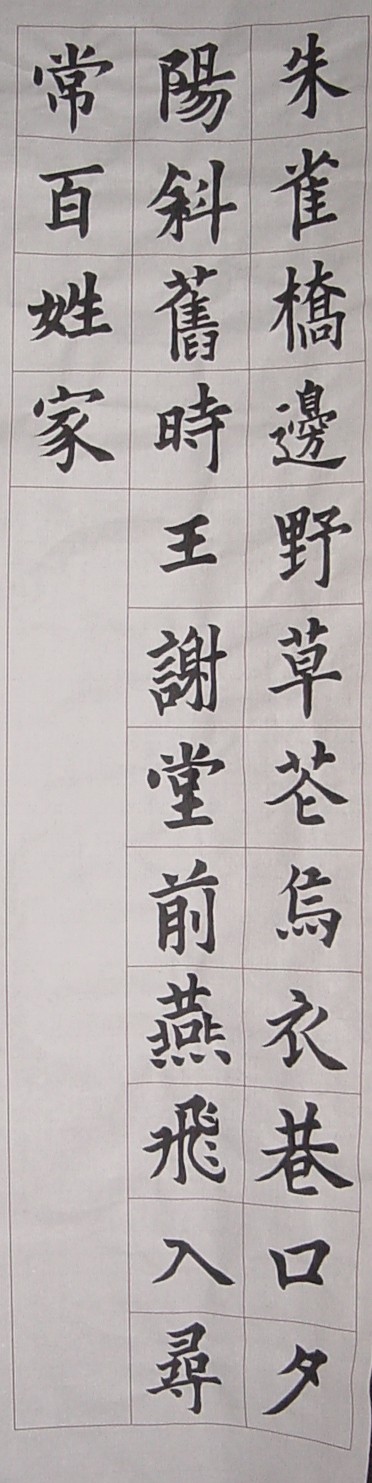 朱雀橋邊野草苍烏衣巷口夕
陽斜舊時王謝堂前燕飛入尋
常百姓家